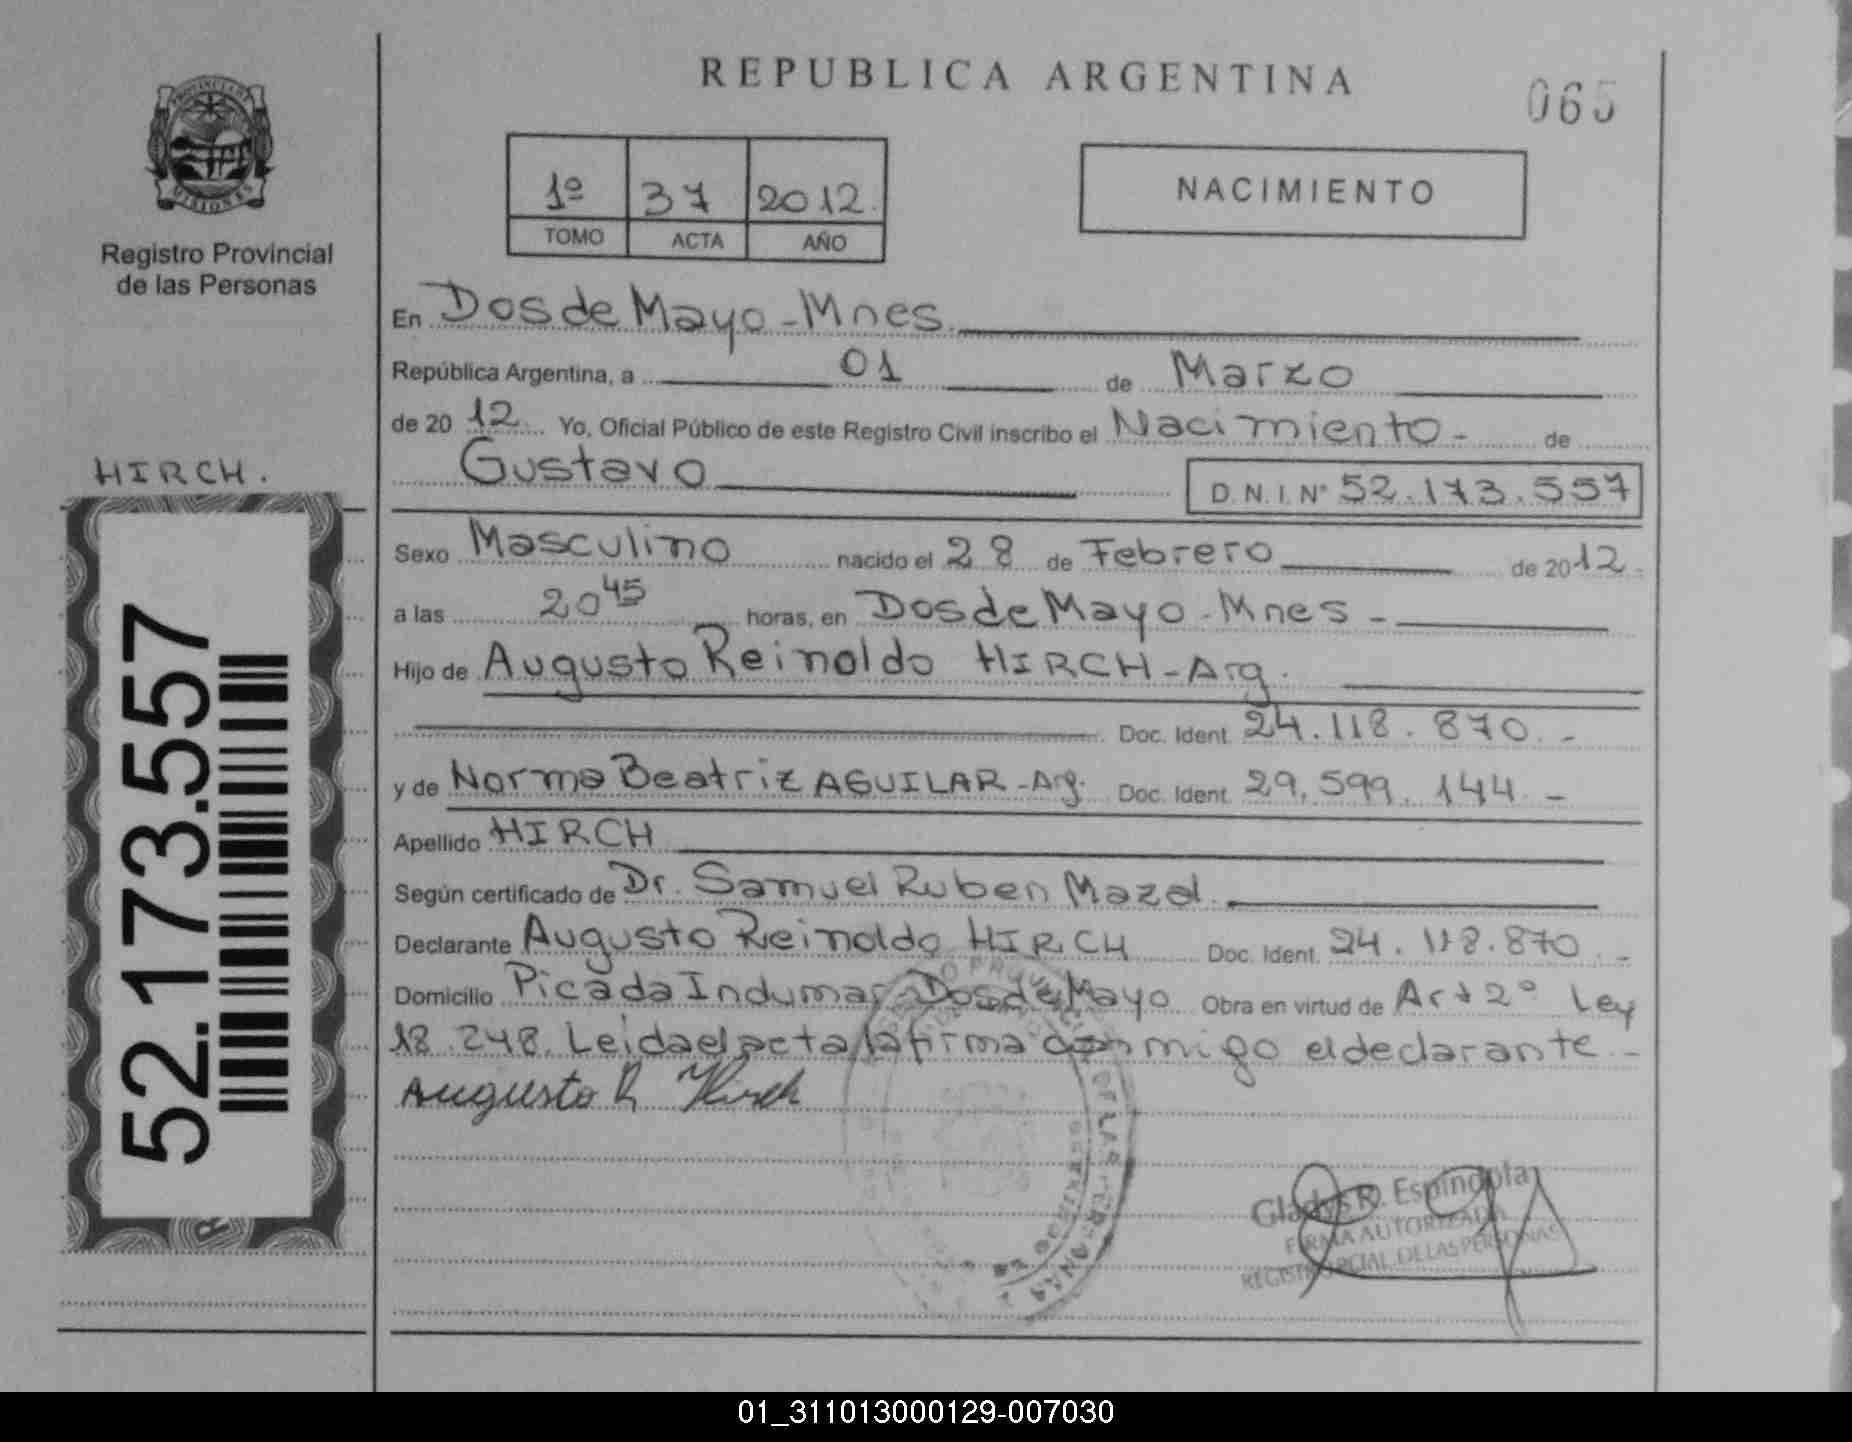 REPUBLICA ARGENTINA
065
PROVINCIA DE
MISIONES
Registro Provincial
de las Personas
1º 37 2012.
TOMO ACTA AÑO
NACIMIENTO
En Dos de Mayo - Mnes.
República Argentina, a 01 de Marzo
de 20 12 Yo, Oficial Público de este Registro Civil inscribo el Nacimiento - de
HIRCH.
Gustavo D.N.I.Nº 52.173.557
Sexo Masculino nacido el 28 de Febrero de 20 12.
a las 20 45 horas, en Dos de Mayo - Mnes -
Hijo de Augusto Reinoldo HIRCH - Arg.
Doc. Ident. 24.118.870. -
y de Norma Beatriz AGUILAR - Arg. Doc. Ident. 29.599.144 -
Apellido HIRCH
Según certificado de Dr. Samuel Ruben Mazal.
Declarante Augusto Reinoldo HIRCH Doc. Ident. 24.118.870. -
Domicilio Picada Indumar - Dos de Mayo Obra en virtud de Art 2º Ley
18.248. Leida el acta la firma conmigo el declarante. -
Augusto R Hirch
52.173.557
Gladys R. Espindola
FIRMA AUTORIZADA
REGISTRO PCIAL. DE LAS PERSONAS
01_311013000129-007030